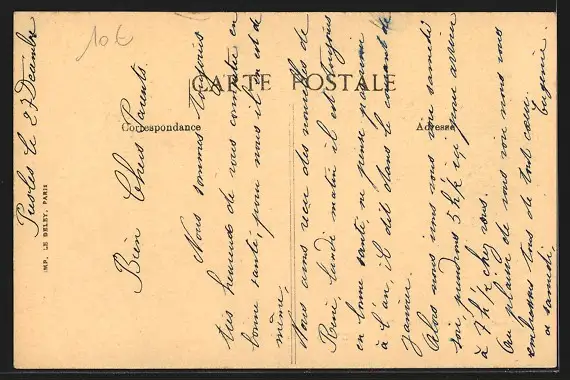 10 €
CARTE POSTALE
Correspondance
Adresse
IMP. LE DELEY, PARIS
le 27 Décembre
Bien Chers Parents.
Nous sommes toujours
très heureux de vous connaître en
bonne santé, pour nous il en est de
même.
Nous avons reçu des nouvelles de
René, lundi matin il est toujours
en bonne santé, ne pense pas venir
à l'an, il dit dans le courant de
Janvier.
Alors nous vous samedi
soir, prendrons 5 h ½ ici pour arriver
à 7 h ½ chez vous.
Au plaisir de vous voir nous vous
embrassons tous de tout cœur.
à samedi, Eugénie.